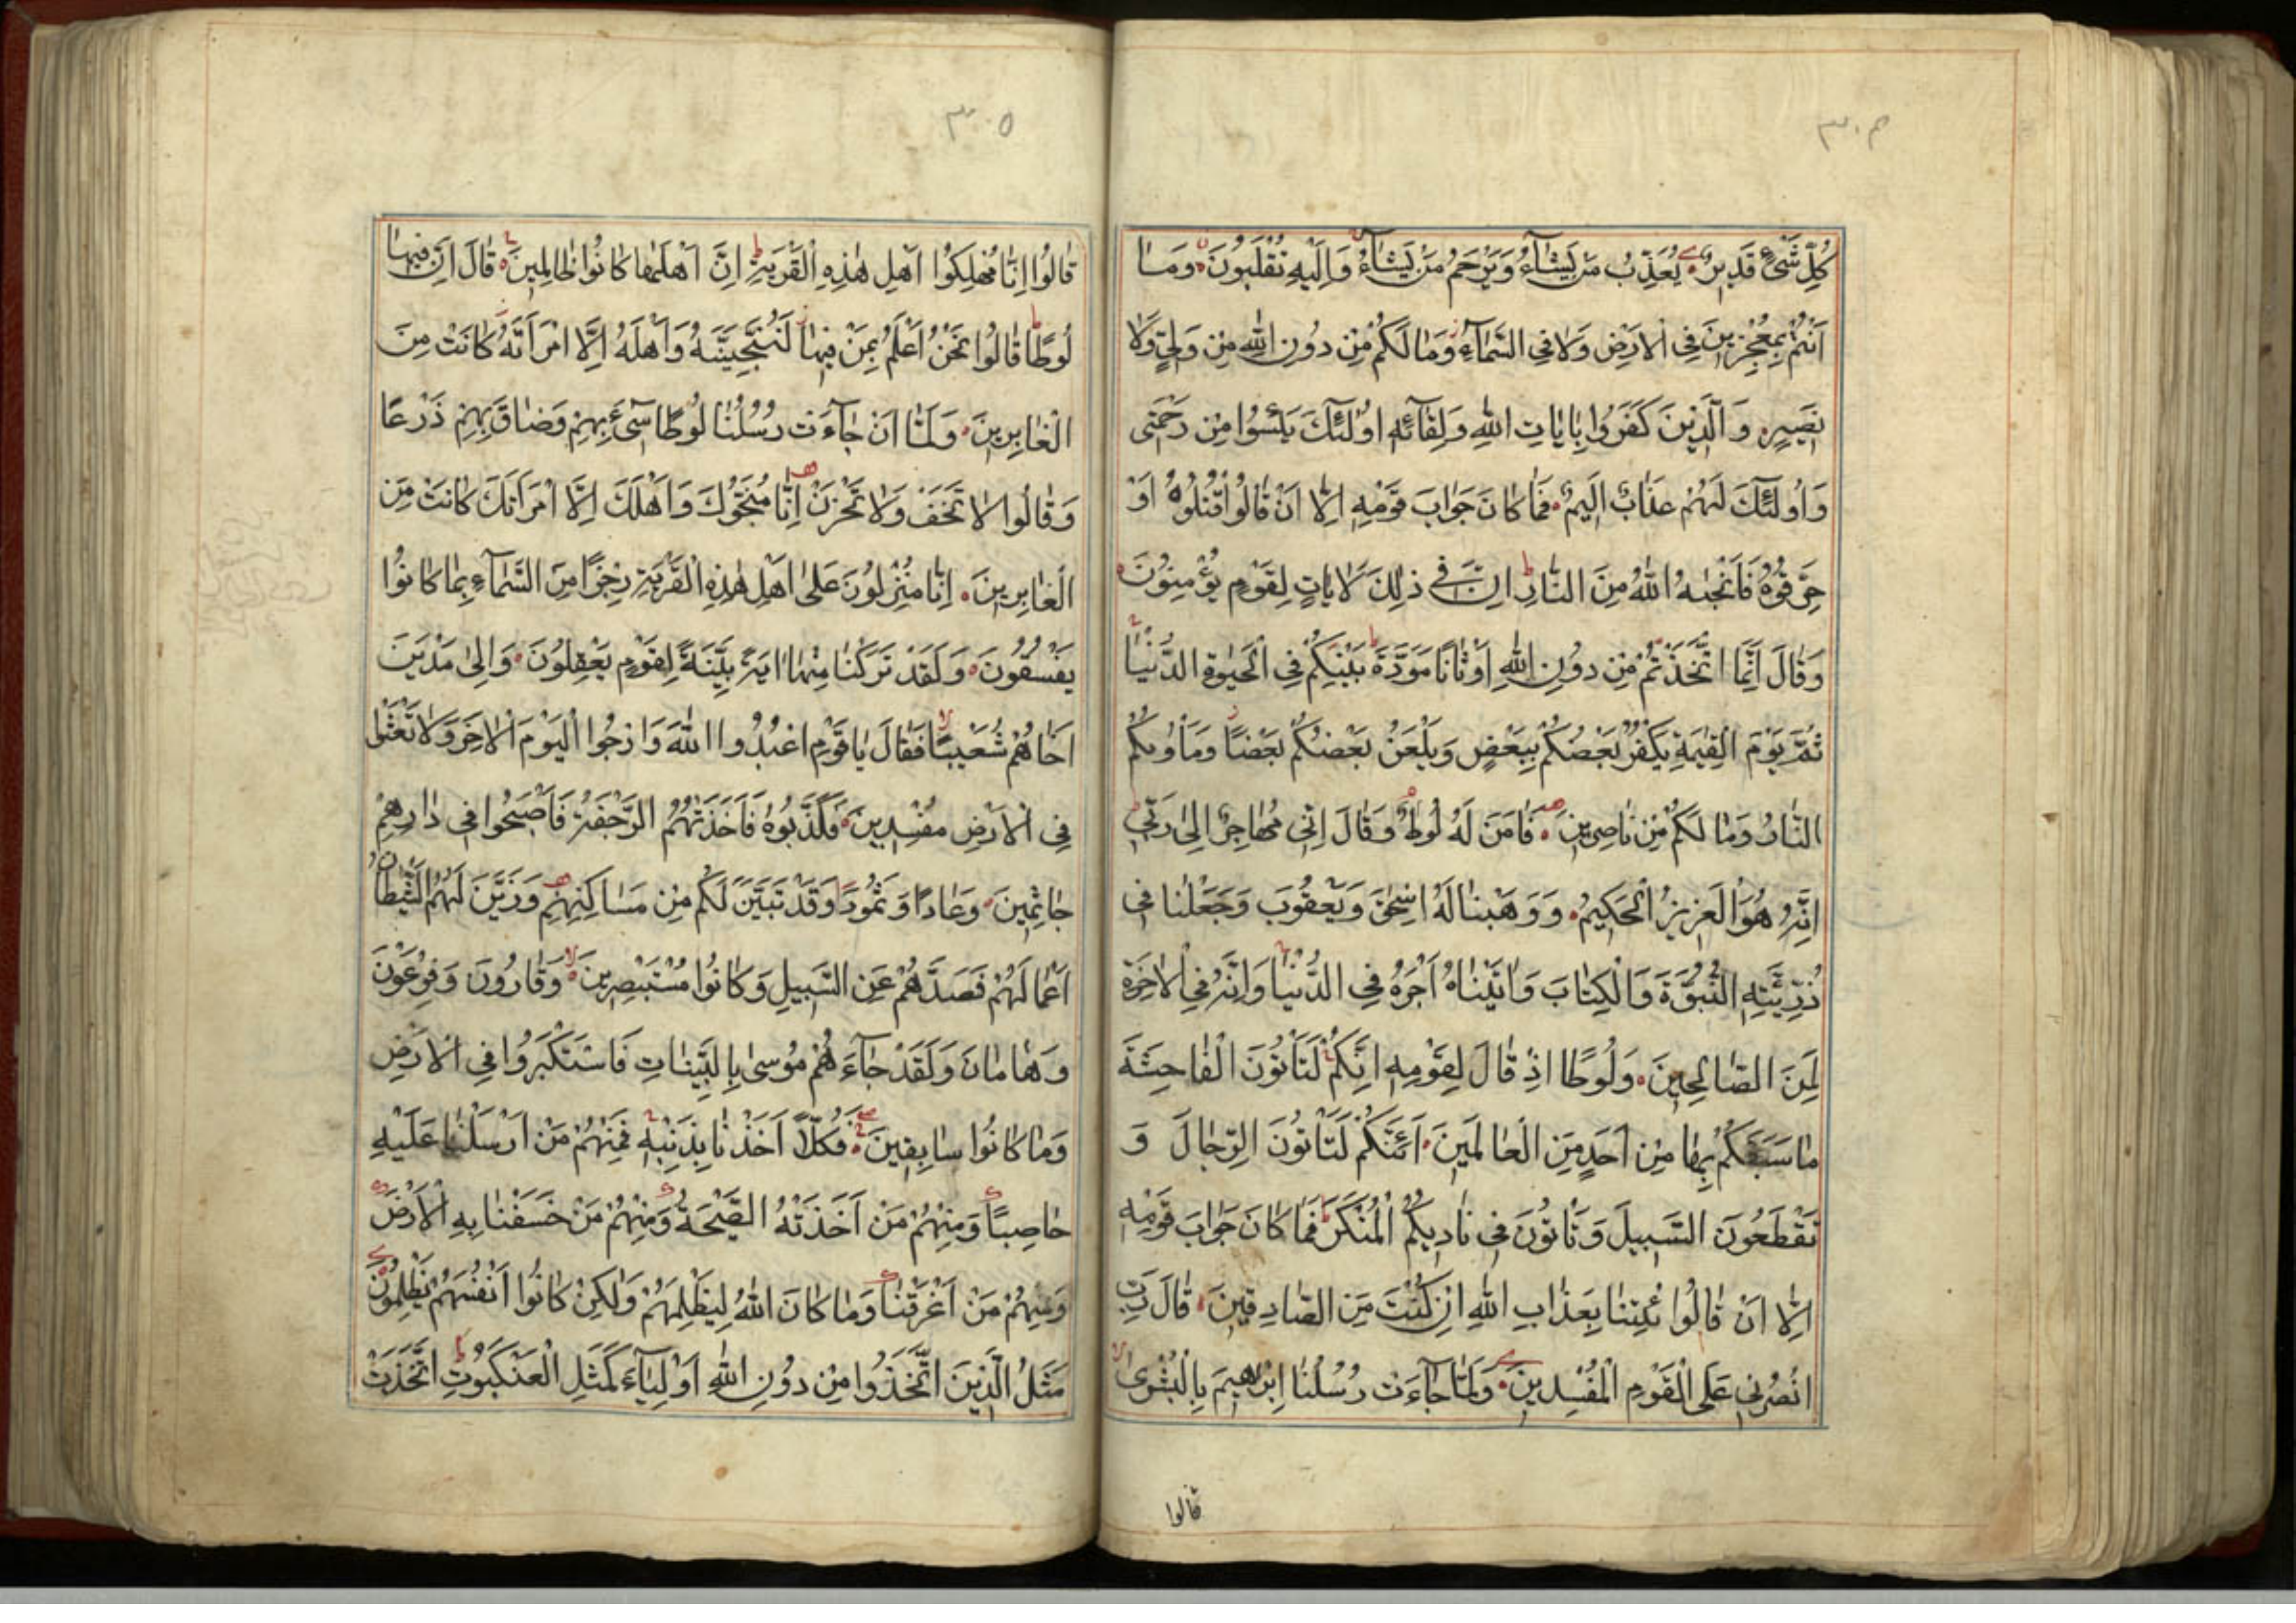 ٣٠٤
كُلِّ شَىْءٍ قَدِيرٌ يُعَذِّبُ مَنْ يَشَآءُ وَيَرْحَمُ مَنْ يَشَآءُ وَاِلَيْهِ تُقْلَبُونَ وَمَا
اَنْتُمْ بِمُعْجِزِينَ فِى الْاَرْضِ وَلَا فِى السَّمَآءِ وَمَا لَكُمْ مِنْ دُونِ اللهِ مِنْ وَلِىٍّ وَلَا
نَصِيرٍ وَالَّذِينَ كَفَرُوا بِاٰيَاتِ اللهِ وَلِقَآئِهِ اُولٰئِكَ يَئِسُوا مِنْ رَحْمَتِى
وَاُولٰئِكَ لَهُمْ عَذَابٌ اَلِيمٌ فَمَا كَانَ جَوَابَ قَوْمِهِ اِلَّا اَنْ قَالُوا اقْتُلُوهُ اَوْ
حَرِّقُوهُ فَاَنْجٰيهُ اللهُ مِنَ النَّارِ اِنَّ فِى ذٰلِكَ لَاٰيَاتٍ لِقَوْمٍ يُؤْمِنُونَ
وَقَالَ اِنَّمَا اتَّخَذْتُمْ مِنْ دُونِ اللهِ اَوْثَانًا مَوَدَّةَ بَيْنِكُمْ فِى الْحَيٰوةِ الدُّنْيَا
ثُمَّ يَوْمَ الْقِيٰمَةِ يَكْفُرُ بَعْضُكُمْ بِبَعْضٍ وَيَلْعَنُ بَعْضُكُمْ بَعْضًا وَمَاْوٰيكُمُ
النَّارُ وَمَا لَكُمْ مِنْ نَاصِرِينَ فَاٰمَنَ لَهُ لُوطٌ وَقَالَ اِنِّى مُهَاجِرٌ اِلٰى رَبِّى
اِنَّهُ هُوَ الْعَزِيزُ الْحَكِيمُ وَوَهَبْنَا لَهُ اِسْحٰقَ وَيَعْقُوبَ وَجَعَلْنَا فِى
ذُرِّيَّتِهِ النُّبُوَّةَ وَالْكِتَابَ وَاٰتَيْنَاهُ اَجْرَهُ فِى الدُّنْيَا وَاِنَّهُ فِى الْاٰخِرَةِ
لَمِنَ الصَّالِحِينَ وَلُوطًا اِذْ قَالَ لِقَوْمِهِ اِنَّكُمْ لَتَاْتُونَ الْفَاحِشَةَ
مَا سَبَقَكُمْ بِهَا مِنْ اَحَدٍ مِنَ الْعَالَمِينَ اَئِنَّكُمْ لَتَاْتُونَ الرِّجَالَ وَ
تَقْطَعُونَ السَّبِيلَ وَتَاْتُونَ فِى نَادِيكُمُ الْمُنْكَرَ فَمَا كَانَ جَوَابَ قَوْمِهِ
اِلَّا اَنْ قَالُوا ئْتِنَا بِعَذَابِ اللهِ اِنْ كُنْتَ مِنَ الصَّادِقِينَ قَالَ رَبِّ
انْصُرْنِى عَلَى الْقَوْمِ الْمُفْسِدِينَ وَلَمَّا جَآءَتْ رُسُلُنَا اِبْرٰهِيمَ بِالْبُشْرٰى
قالوا
٣٠٥
قَالُوا اِنَّا مُهْلِكُوا اَهْلِ هٰذِهِ الْقَرْيَةِ اِنَّ اَهْلَهَا كَانُوا ظَالِمِينَ قَالَ اِنَّ فِيهَا
لُوطًا قَالُوا نَحْنُ اَعْلَمُ بِمَنْ فِيهَا لَنُنَجِّيَنَّهُ وَاَهْلَهُ اِلَّا امْرَاَتَهُ كَانَتْ مِنَ
الْغَابِرِينَ وَلَمَّا اَنْ جَآءَتْ رُسُلُنَا لُوطًا سِىءَ بِهِمْ وَضَاقَ بِهِمْ ذَرْعًا
وَقَالُوا لَا تَخَفْ وَلَا تَحْزَنْ اِنَّا مُنَجُّوكَ وَاَهْلَكَ اِلَّا امْرَاَتَكَ كَانَتْ مِنَ
الْغَابِرِينَ اِنَّا مُنْزِلُونَ عَلٰى اَهْلِ هٰذِهِ الْقَرْيَةِ رِجْزًا مِنَ السَّمَآءِ بِمَا كَانُوا
يَفْسُقُونَ وَلَقَدْ تَرَكْنَا مِنْهَا اٰيَةً بَيِّنَةً لِقَوْمٍ يَعْقِلُونَ وَاِلٰى مَدْيَنَ
اَخَاهُمْ شُعَيْبًا فَقَالَ يَا قَوْمِ اعْبُدُوا اللهَ وَارْجُوا الْيَوْمَ الْاٰخِرَ وَلَا تَعْثَوْا
فِى الْاَرْضِ مُفْسِدِينَ فَكَذَّبُوهُ فَاَخَذَتْهُمُ الرَّجْفَةُ فَاَصْبَحُوا فِى دَارِهِمْ
جَاثِمِينَ وَعَادًا وَثَمُودًا وَقَدْ تَبَيَّنَ لَكُمْ مِنْ مَسَاكِنِهِمْ وَزَيَّنَ لَهُمُ الشَّيْطَانُ
اَعْمَالَهُمْ فَصَدَّهُمْ عَنِ السَّبِيلِ وَكَانُوا مُسْتَبْصِرِينَ وَقَارُونَ وَفِرْعَوْنَ
وَهَامَانَ وَلَقَدْ جَآءَهُمْ مُوسٰى بِالْبَيِّنَاتِ فَاسْتَكْبَرُوا فِى الْاَرْضِ
وَمَا كَانُوا سَابِقِينَ فَكُلًّا اَخَذْنَا بِذَنْبِهِ فَمِنْهُمْ مَنْ اَرْسَلْنَا عَلَيْهِ
حَاصِبًا وَمِنْهُمْ مَنْ اَخَذَتْهُ الصَّيْحَةُ وَمِنْهُمْ مَنْ خَسَفْنَا بِهِ الْاَرْضَ
وَمِنْهُمْ مَنْ اَغْرَقْنَا وَمَا كَانَ اللهُ لِيَظْلِمَهُمْ وَلٰكِنْ كَانُوا اَنْفُسَهُمْ يَظْلِمُونَ
مَثَلُ الَّذِينَ اتَّخَذُوا مِنْ دُونِ اللهِ اَوْلِيَآءَ كَمَثَلِ الْعَنْكَبُوتِ اتَّخَذَتْ